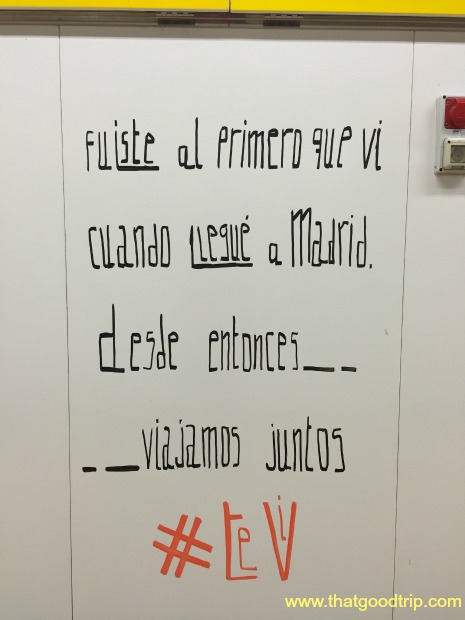 fuiste al primero que vi
cuando llegué a Madrid.
desde entonces_ _
_ _viajamos juntos
#te Vi
www.thatgoodtrip.com